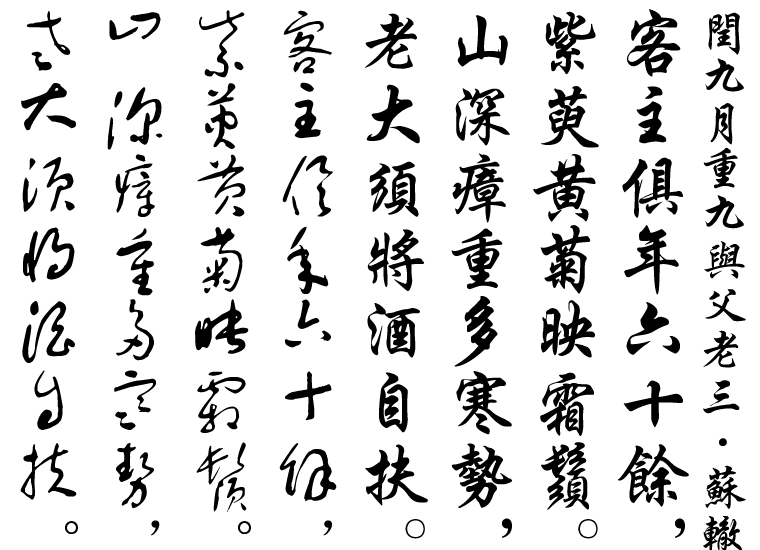 閏九月重九與父老三·蘇轍
客主俱年六十餘，
紫萸黃菊映霜鬚。
山深瘴重多寒勢，
老大須將酒自扶。
客主俱年六十餘，
紫萸黃菊映霜鬚。
山深瘴重多寒勢，
老大須將酒自扶。